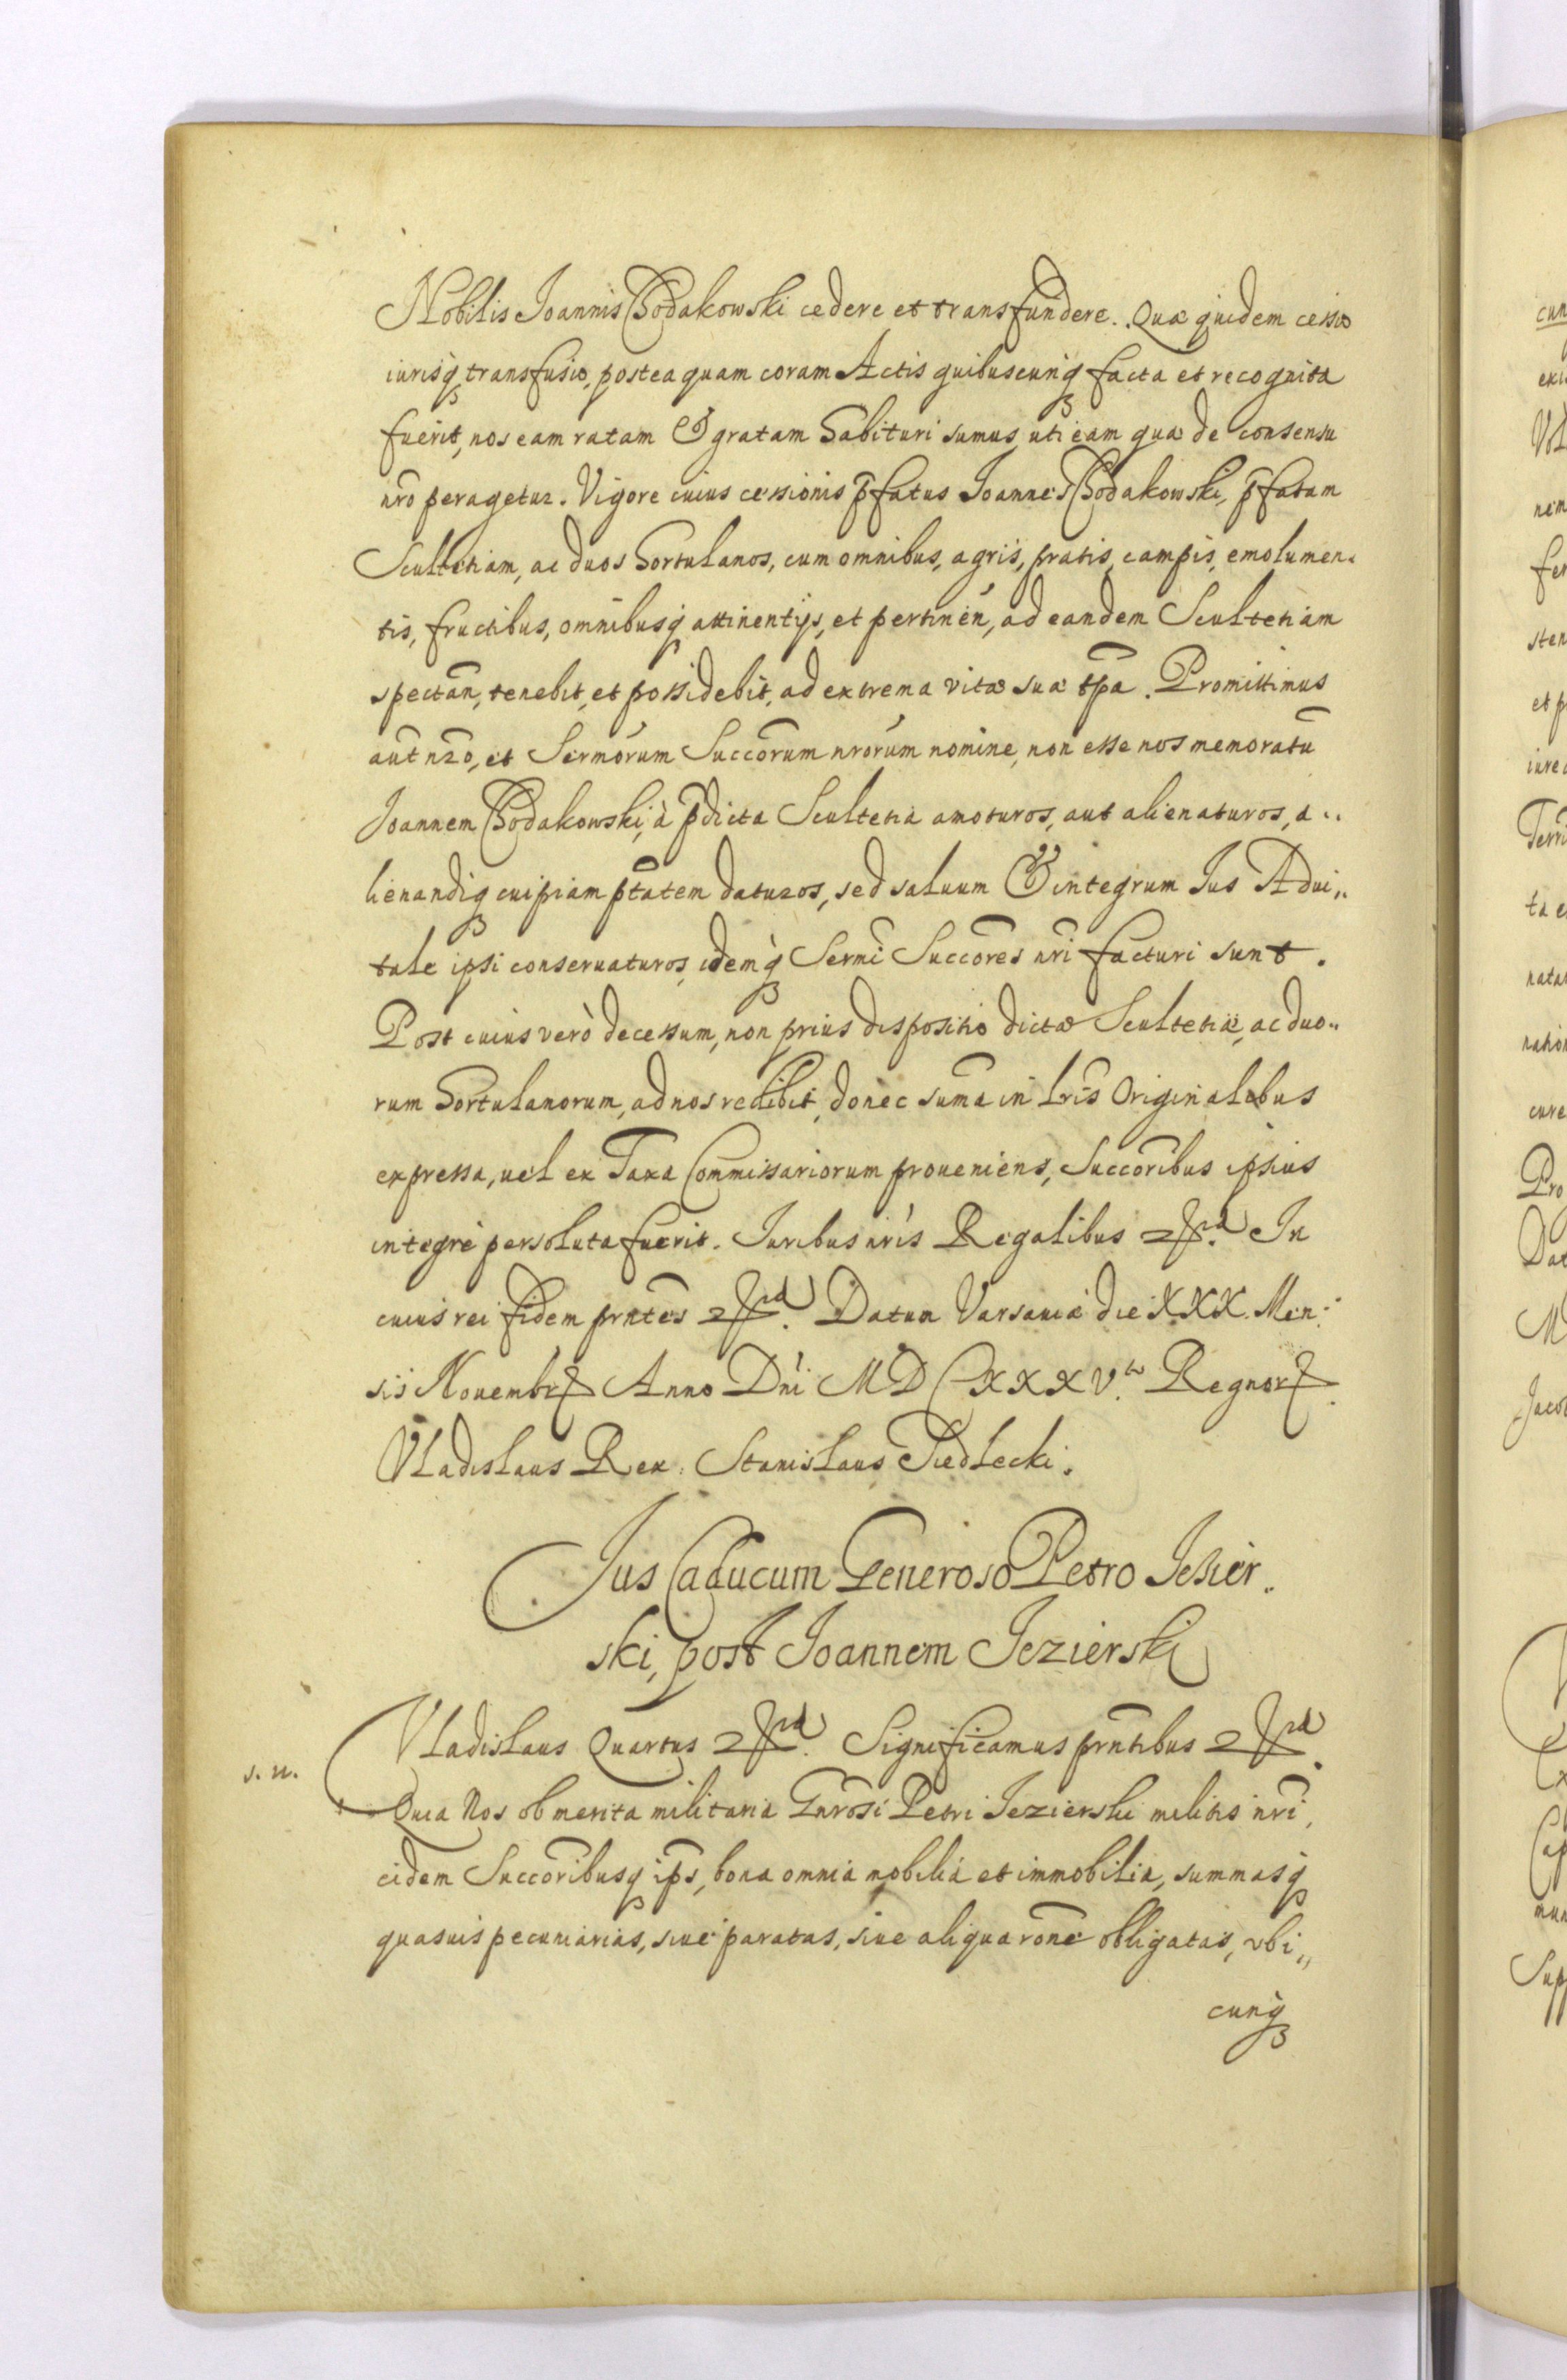 Nobilis Joannis Chodakowski cedere et transfundere. Quæ quidem cessio
iurisq́ꝫ transfusio, postea quam coram Actis quibuscunq́ꝫ facta et recognita
fuerit, nos eam ratam & gratam habituri sumus, uti eam quæ de consensu
nr̃o peragetur. Vigore cuius cessionis p̃fatus Joannes Chodakowski, p̃fatam
Scultetiam, ac duos hortulanos, cum omnibus, agris, pratis, campis, emolumen-
tis, fructibus, omnibusq́ꝫ attinentijs, et pertineñ, ad eandem Scultetiam
spectañ, tenebit, et possidebit, ad extrema vitæ suæ tp̃a. Promittimus
aut̃ nr̃o, et Sermõrum Succõrum nrõrum nomine, non esse nos memoratũ
Joannem Chodakowski, à p̃dicta Scultetia amoturos, aut alienaturos, a-
lienandiq́ꝫ cuipiam pt̃atem daturos, sed saluum & integrum Jus Adui-
tale ipsi conseruaturos, idemq́ꝫ Sermĩ Succõres nrĩ facturi sunt.
Post cuius verò decessum, non prius dispositio dictæ Scultetiæ, ac duo-
rum hortulanorum, ad nos redibit, donec sum̃a in lrĩs Originalibus
expressa, uel ex Taxa Commissariorum proueniens, Succõribus ipsius
integrè persoluta fuerit. Juribus nrĩs Regalibus &c. In
cuius rei fidem prñtes &c. Datum Varsauiæ die XXX. Men-
sis Nouembr. Anno Dñi MDCXXXV.to Regnor.
Vladislaus Rex. Stanislaus Siedlecki.
Jus Caducum Generoso Petro Jezier-
ski, post Joannem Jezierski
Vladislaus Quartus &c. Significamus prñtibus &c.
s. n.
Quia Nos ob merita militaria Gnrõsi Petri Jezierski militis nrĩ,
eidem Succõribusq́ꝫ ips̃, bona omnia mobilia et immobilia, summasq́ꝫ
quasuis pecuniarias, siue paratas, siue aliqua rõne obligatas, vbi-
cunq́ꝫ